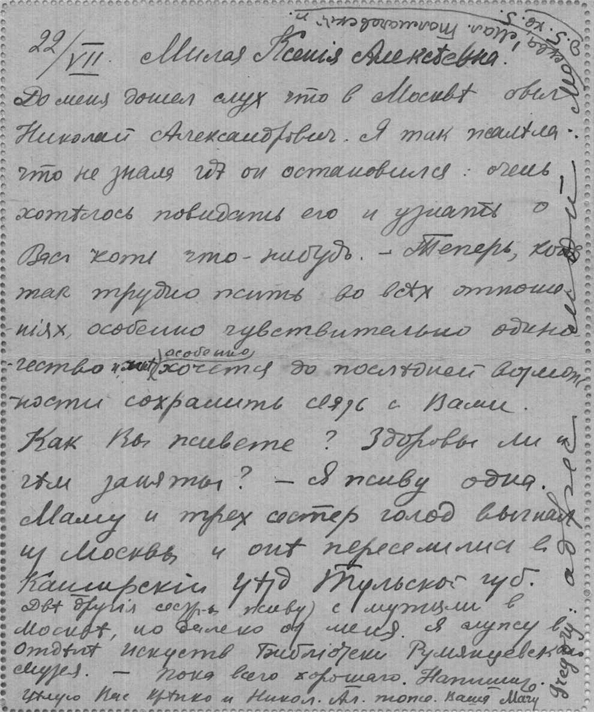 22/VII. Милая Ксенія Алексѣевна.
До меня дошел слух что в Москвѣ был
Николай Александрович. Я так жалѣла
что не знала гдѣ он остановился: очень
хотѣлось повидать его и узнать о
Вас хоть что-нибудь. – Теперь, когда
так трудно жить во всѣх отноше-
ніях, особенно чувствительно одино-
чество и особенно
хочется до послѣдней возмож-
ности сохранить связь с Вами.
Как Вы живете? Здоровы ли и
чѣм заняты? – Я живу одна.
Маму и трех сестер голод выгнал
из Москвы и онѣ переселились в
Каширскій уѣзд Тульской губ.
Двѣ другія сестры живут с мужьями в
Москвѣ, но далеко от меня. Я служу в
отдѣлѣ искусств Библіотеки Румянцевск.
музея. – Пока всего хорошаго. Напишите.
Цѣлую Вас крѣпко и Никол. Ал. тоже. Ваша
адрес
Москва, Мал. Толмачевскій п.